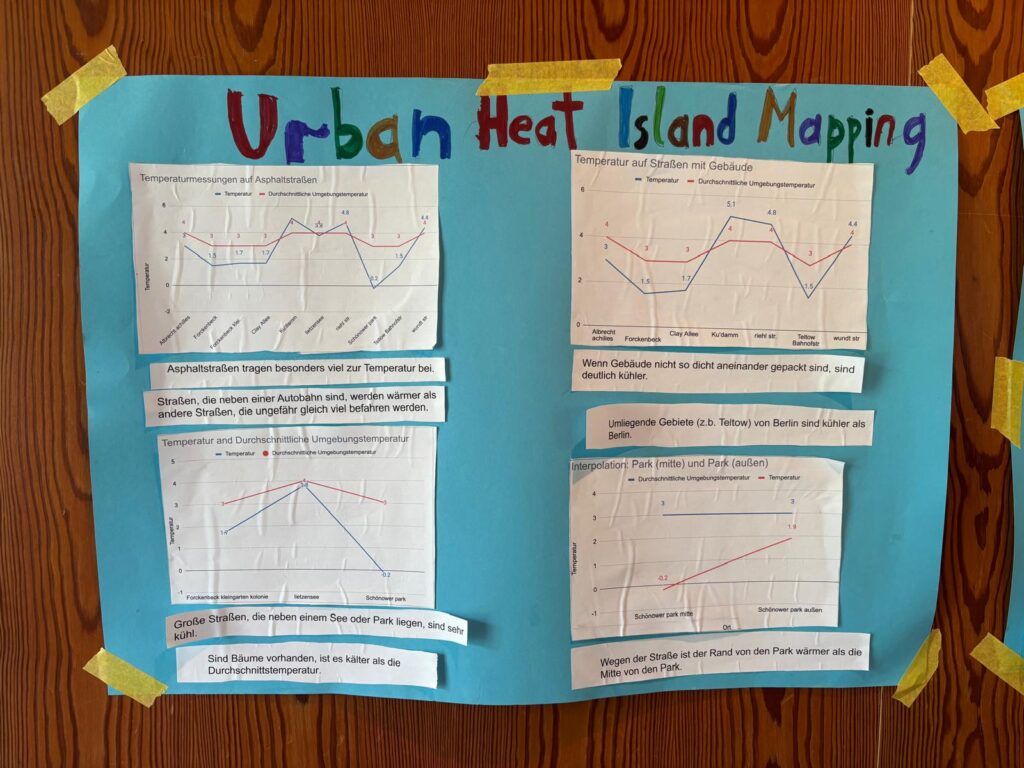 Urban Heat Island Mapping
Temperaturmessungen auf Asphaltstraßen
Temperatur Durchschnittliche Umgebungstemperatur
Temperatur
6
4
2
0
-2
4 3 3 3 4 4 4 3 3 4
3 1.5 1.7 1.7 3.8 4.8 -0.2 1.5 4.4
Albrechts achilles
Forckenbeck
Forckenbeck klei.
Clay Allee
Ku'damm
lietzensee
riehl str
Schönower park
Teltow Bahnofstr
wundt str
Asphaltstraßen tragen besonders viel zur Temperatur bei.
Straßen, die neben einer Autobahn sind, werden wärmer als
andere Straßen, die ungefähr gleich viel befahren werden.
Temperatur und Durchschnittliche Umgebungstemperatur
Temperatur Durchschnittliche Umgebungstemperatur
Temperatur
5
4
3
2
1
0
-1
3 4 3
1.7 -0.2
Forckenbeck kleingarten kolonie lietzensee Schönower park
Große Straßen, die neben einem See oder Park liegen, sind sehr
kühl.
Sind Bäume vorhanden, ist es kälter als die
Durchschnittstemperatur.
Temperatur auf Straßen mit Gebäude
Temperatur Durchschnittliche Umgebungstemperatur
6
4
2
0
4 3 3 4 4 3 4
3 1.5 1.7 5.1 4.8 1.5 4.4
Albrecht
achilles
Forckenbeck
Clay Allee
Ku'damm
riehl str.
Teltow
Bahnofstr
wundt str
Wenn Gebäude nicht so dicht aneinander gepackt sind, sind
deutlich kühler.
Umliegende Gebiete (z.b. Teltow) von Berlin sind kühler als
Berlin.
Interpolation: Park (mitte) und Park (außen)
Durchschnittliche Umgebungstemperatur Temperatur
Temperatur
4
3
2
1
0
-1
3 3
-0.2 1.9
Schönower park mitte Schönower park außen
Ort
Wegen der Straße ist der Rand von den Park wärmer als die
Mitte von den Park.